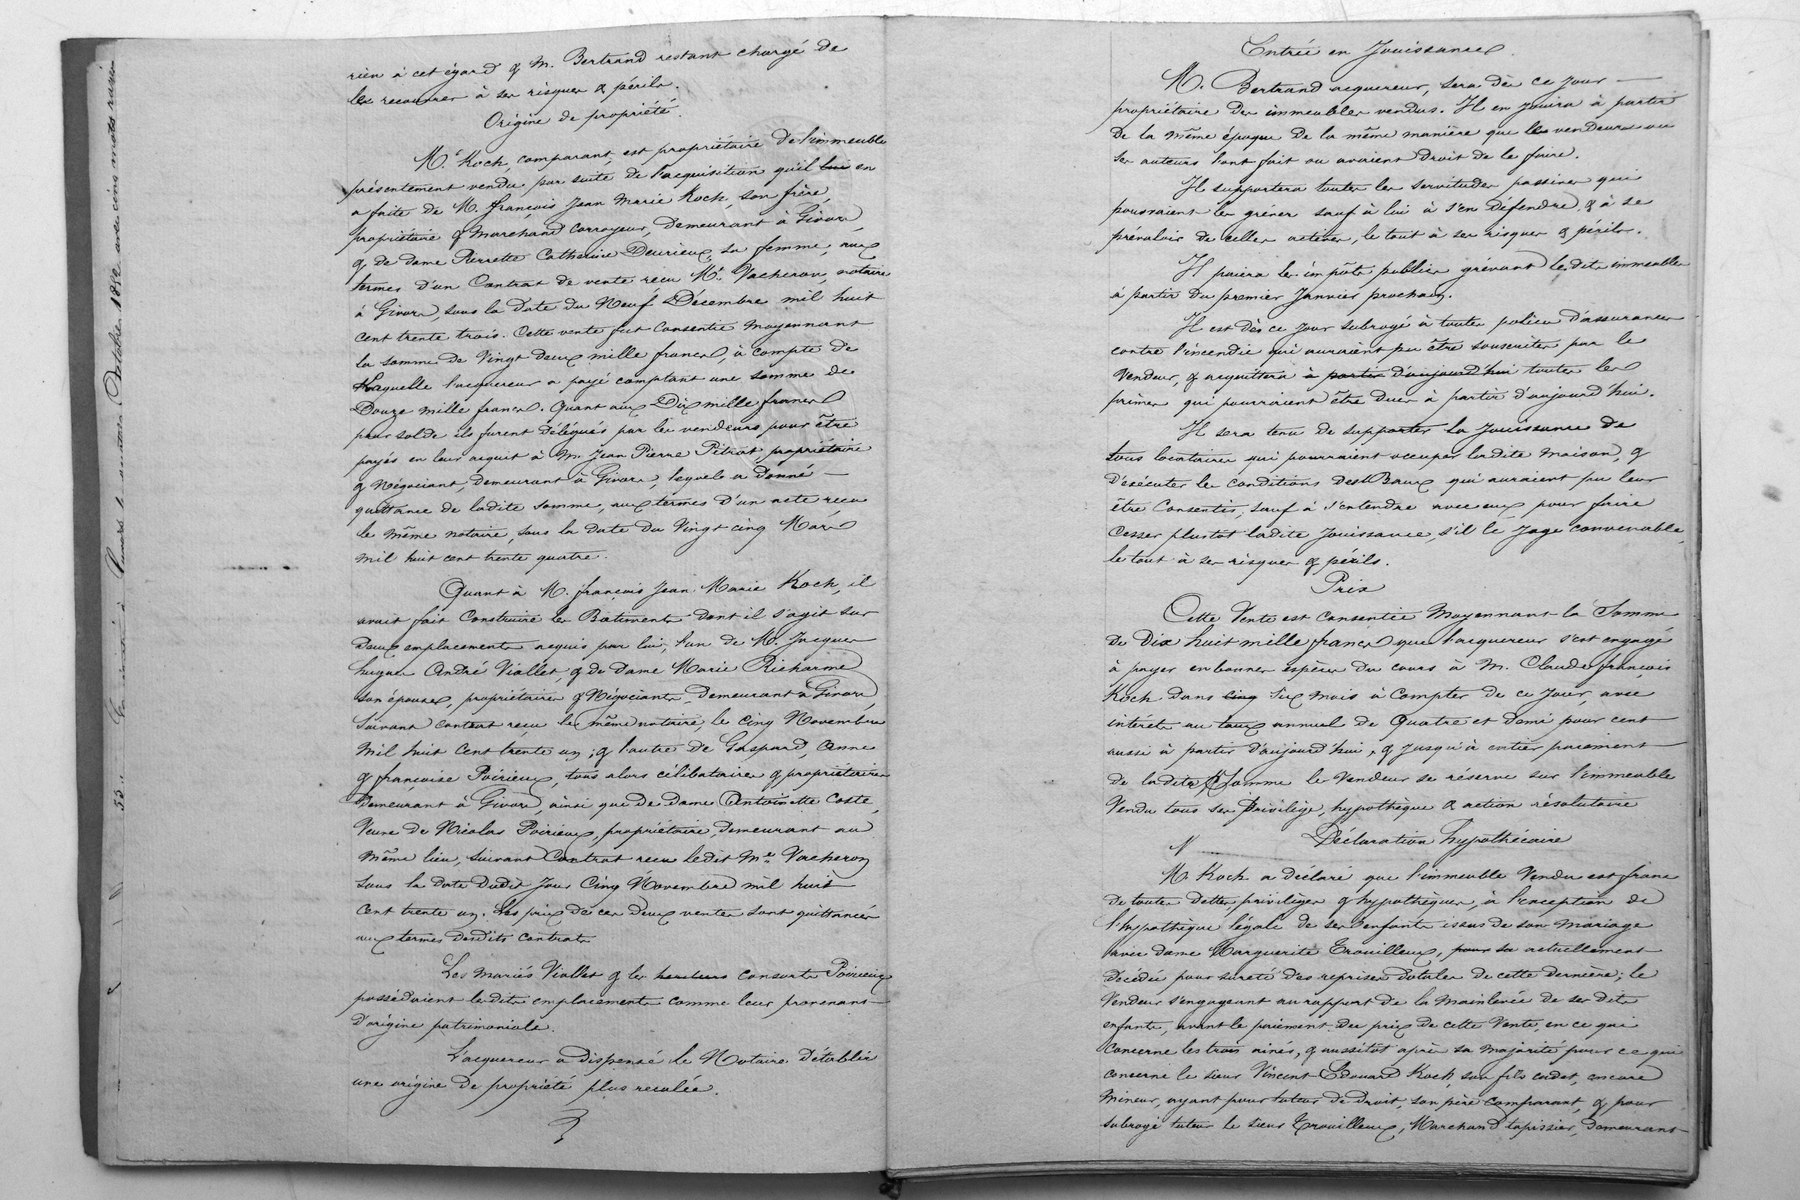 rien à cet égard & M. Bertrand restant chargé de
les recouvrer à ses risques & périls.
Origine de propriété.
Mr. Koch, comparant, est propriétaire de l'immeuble
présentement vendu par suite de l'acquisition qu'il lui en
a faite de M. françois Jean Marie Koch, son frère,
propriétaire & Marchand Corroyeur, Demeurant à Givors,
& de Dame Pierrette Catherine Deurieux, sa femme, aux
termes d'un Contrat de vente reçu Me. Vacheron, notaire
à Givors, sous la Date du Neuf Décembre mil huit
cent trente trois. Cette vente fut Consentie Moyennant
la somme de Vingt Deux mille francs, à compte de
laquelle l'acquereur a payé comptant une somme de
Douze mille francs. Quant aux Dix mille francs
pour solde ils furent Délégués par les vendeurs pour être
payés en leur acquit à M. Jean Pierre Pitrat, propriétaire
& Négociant, Demeurant à Givors, lequel a Donné
quittance de ladite Somme, aux termes D'un acte reçu
le même notaire, sous la Date du Vingt cinq Mars
mil huit cent trente quatre.
Quant à M. françois Jean Marie Koch, il
avait fait Construire les Bâtiments Dont il s'agit sur
Deux emplacements acquis par lui, l'un de M. Jacques
hugues André Viallet, & de Dame Marie Richarme
son épouse, propriétaires & Négociants, Demeurant à Givors,
Suivant Contrat reçu le même notaire, le Cinq Novembre
Mil huit Cent trente un; & l'autre de Gaspard, Anne
& françoise Poirieux, tous alors célibataires & propriétaires
Demeurant à Givors, ainsi que de Dame Antoinette Coste,
Veuve de Nicolas Poirieux, propriétaire, Demeurant au
Même lieu, Suivant Contrat reçu ledit Me. Vacheron
sous la date Dudit Jour Cinq Novembre mil huit
Cent trente un. Les prix de ces deux ventes sont quittancés
aux termes desdits Contrats.
Les Mariés Viallet & les heritiers consorts Poirieux
possédaient lesdits emplacements comme leur provenant
D'origine patrimoniale.
L'acquereur a dispensé le Notaire D'établir
une origine de propriété plus reculée.
Entrée en Jouissance.
M. Bertrand acquereur, sera dès ce jour
propriétaire des immeubles vendus. Il en jouira à partir
de la même époque De la même manière que les vendeurs ou
ses auteurs l'ont fait ou avaient Droit de le faire.
Il supportera toutes les servitudes passives qui
pourraient les gréver sauf à lui à s'en Défendre, & à se
prévaloir de celles actives, le tout à ses risques & périls.
Il paiera les impôts publics grévant lesdits immeubles
à partir du premier Janvier prochain.
Il est Dès ce jour subrogé à toutes polices D'assurances
contre l'incendie qui auraient pu être souscrites par le
Vendeur, & acquittera à partir d'aujourd'hui toutes les
primes qui pourraient être Dues à partir d'aujourd'hui.
Il sera tenu De supporter la Jouissance De
tous locataires qui pourraient occuper ladite maison, &
D'exécuter les conditions Des Baux qui auraient pu leur
être Consentis, sauf à s'entendre avec eux, pour faire
Cesser plustôt ladite Jouissance, s'il le Juge convenable,
le tout à ses risques & périls.
Prix
Cette Vente est Consentie Moyennant la Somme
De Dix huit mille francs que l'acquereur s'est engagé
à payer en bonnes espèces du cours à M. Claude françois
Koch dans cinq Six mois à Compter de ce Jour, avec
intérêts au taux annuel de Quatre et Demi pour cent
aussi à partir D'aujourd'hui, & jusqu'à entier paiement
de ladite Somme le Vendeur se réserve sur l'immeuble
Vendu tous ses privilège, hypothèque & action résolutoire
Déclaration hypothécaire
M. Koch a déclaré que l'immeuble Vendu est franc
De toutes Dettes, privilèges & hypothèques, à l'exception De
l'hypothèque légale de ses enfants issus de son Mariage
avec Dame Marguerite Trouilleux, pour sa actuellement
Décédée pour sureté Des reprises Dotales De cette Dernière; le
Vendeur s'engageant au rapport de la Mainlevée De ses Dits
enfants, avant le paiement des prix de cette Vente, en ce qui
Concerne les trois ainés, & aussitôt après sa majorité pour ce qui
concerne le sieur Vincent Edouard Koch, son fils cadet, encore
Mineur, ayant pour tuteur De Droit, son père comparant, & pour
subrogé tuteur le sieur Trouilleux, Marchand tapissier, Demeurant